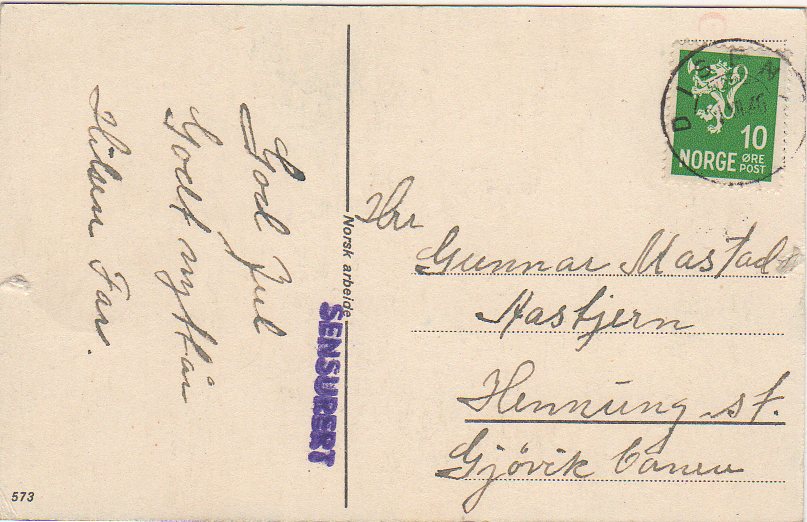 God Jul
Godt nyttår
Hilsen Far.
Norsk arbeide
SENSURERT
573
NORGE
10
ØRE
POST
Hr
Gunnar Mastad
Hennung st.
Gjövik banen